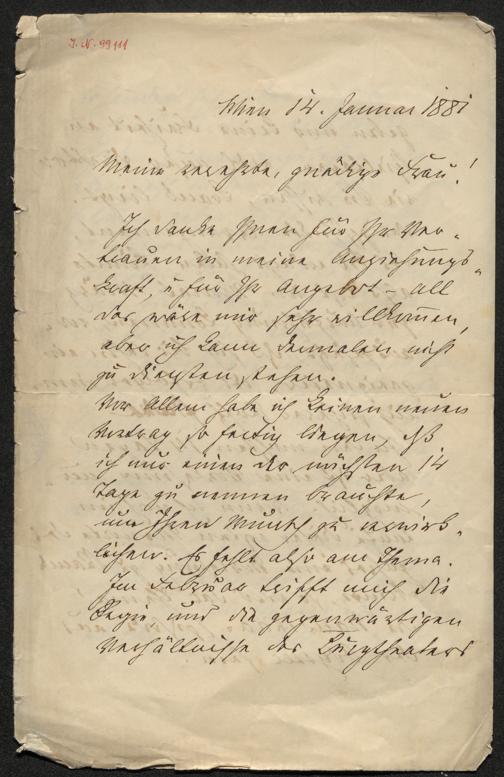 J.N. 99111
Wien 14. Januar 1881
Meine verehrte, gnädige Frau!
Ich danke Ihnen für Ihr Ver-
trauen in meine Anziehungs-
kraft, u für Ihr Angebot – all
das wäre mir sehr willkommen,
aber ich kann dermalen nicht
zu Diensten stehen.
Vor Allem habe ich keinen neuen
Vortrag so fertig liegen, daß
ich nur einen der nächsten 14
Tage zu nennen brauchte,
um Ihren Wunsch zu verwirk-
lichen. Es fehlt also am Thema.
Im Februar trifft mich die
Regie und die gegenwärtigen
Verhältnisse des Burgtheaters